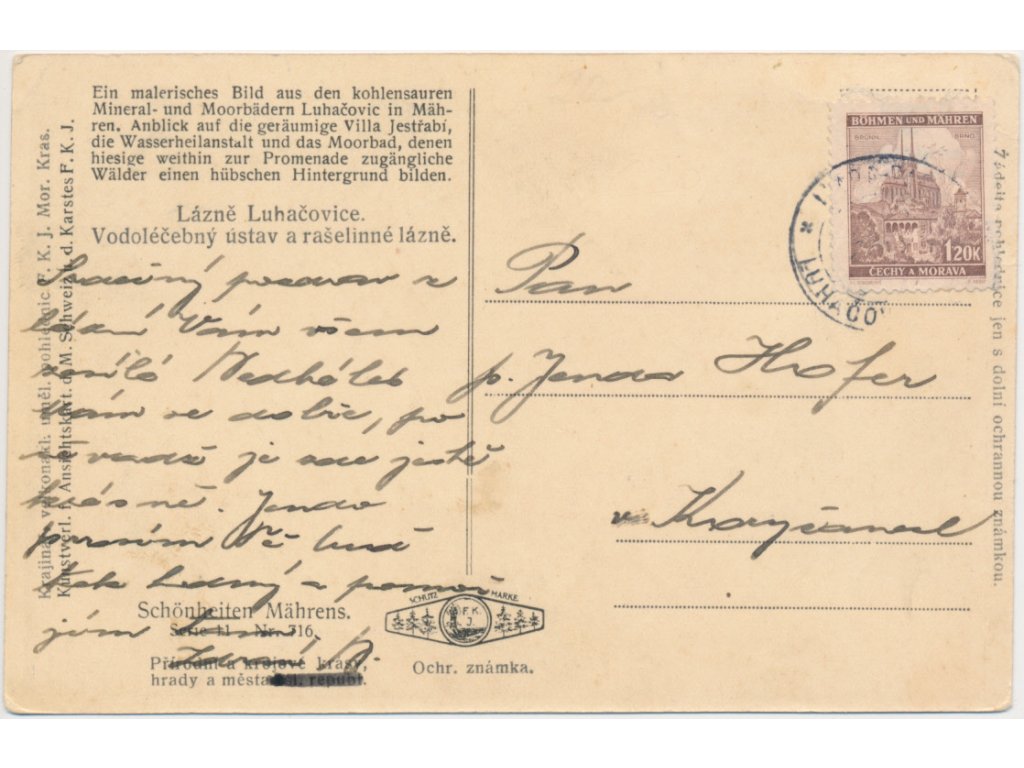 Ein malerisches Bild aus den kohlensauren
Mineral- und Moorbädern Luhačovic in Mäh-
ren. Anblick auf die geräumige Villa Jestřabí,
die Wasserheilanstalt und das Moorbad, denen
hiesige weithin zur Promenade zugängliche
Wälder einen hübschen Hintergrund bilden.
Lázně Luhačovice.
Vodoléčebný ústav a rašelinné lázně.
Srdečný pozdrav z
Vám všem
Vám se dobře, po
je zde ještě
krásně. Jendo
prosím Tě buď
tak hodný a pomoz
jim
Schönheiten Mährens.
Serie 11 - Nr. 316.
Přírodní a krajové krásy,
hrady a města
republ.
SCHUTZ MARKE
F. K. J.
Ochr. známka.
Krajina
uměl. pohlednic F. K. J. Mor. Kras.
Kunstverl. f. Ansichtskart. d. M. Schweiz u. d. Karstes F. K. J.
BÖHMEN UND MÄHREN
BRÜNN BRNO
1.20K
ČECHY A MORAVA
LUHAČO
Pan
p. Jenda Hofer
Žádejte pohlednice jen s dolní ochrannou známkou.